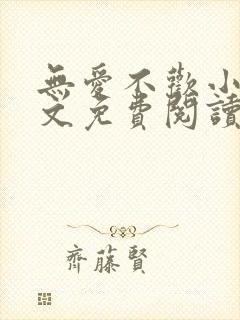 無愛不歡小
文免費閱讀
齊藤賢